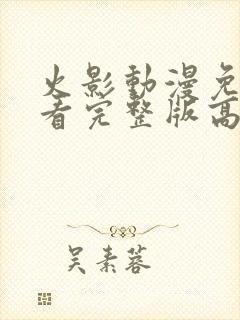 火影動漫免
看完整版高
吴素蓉